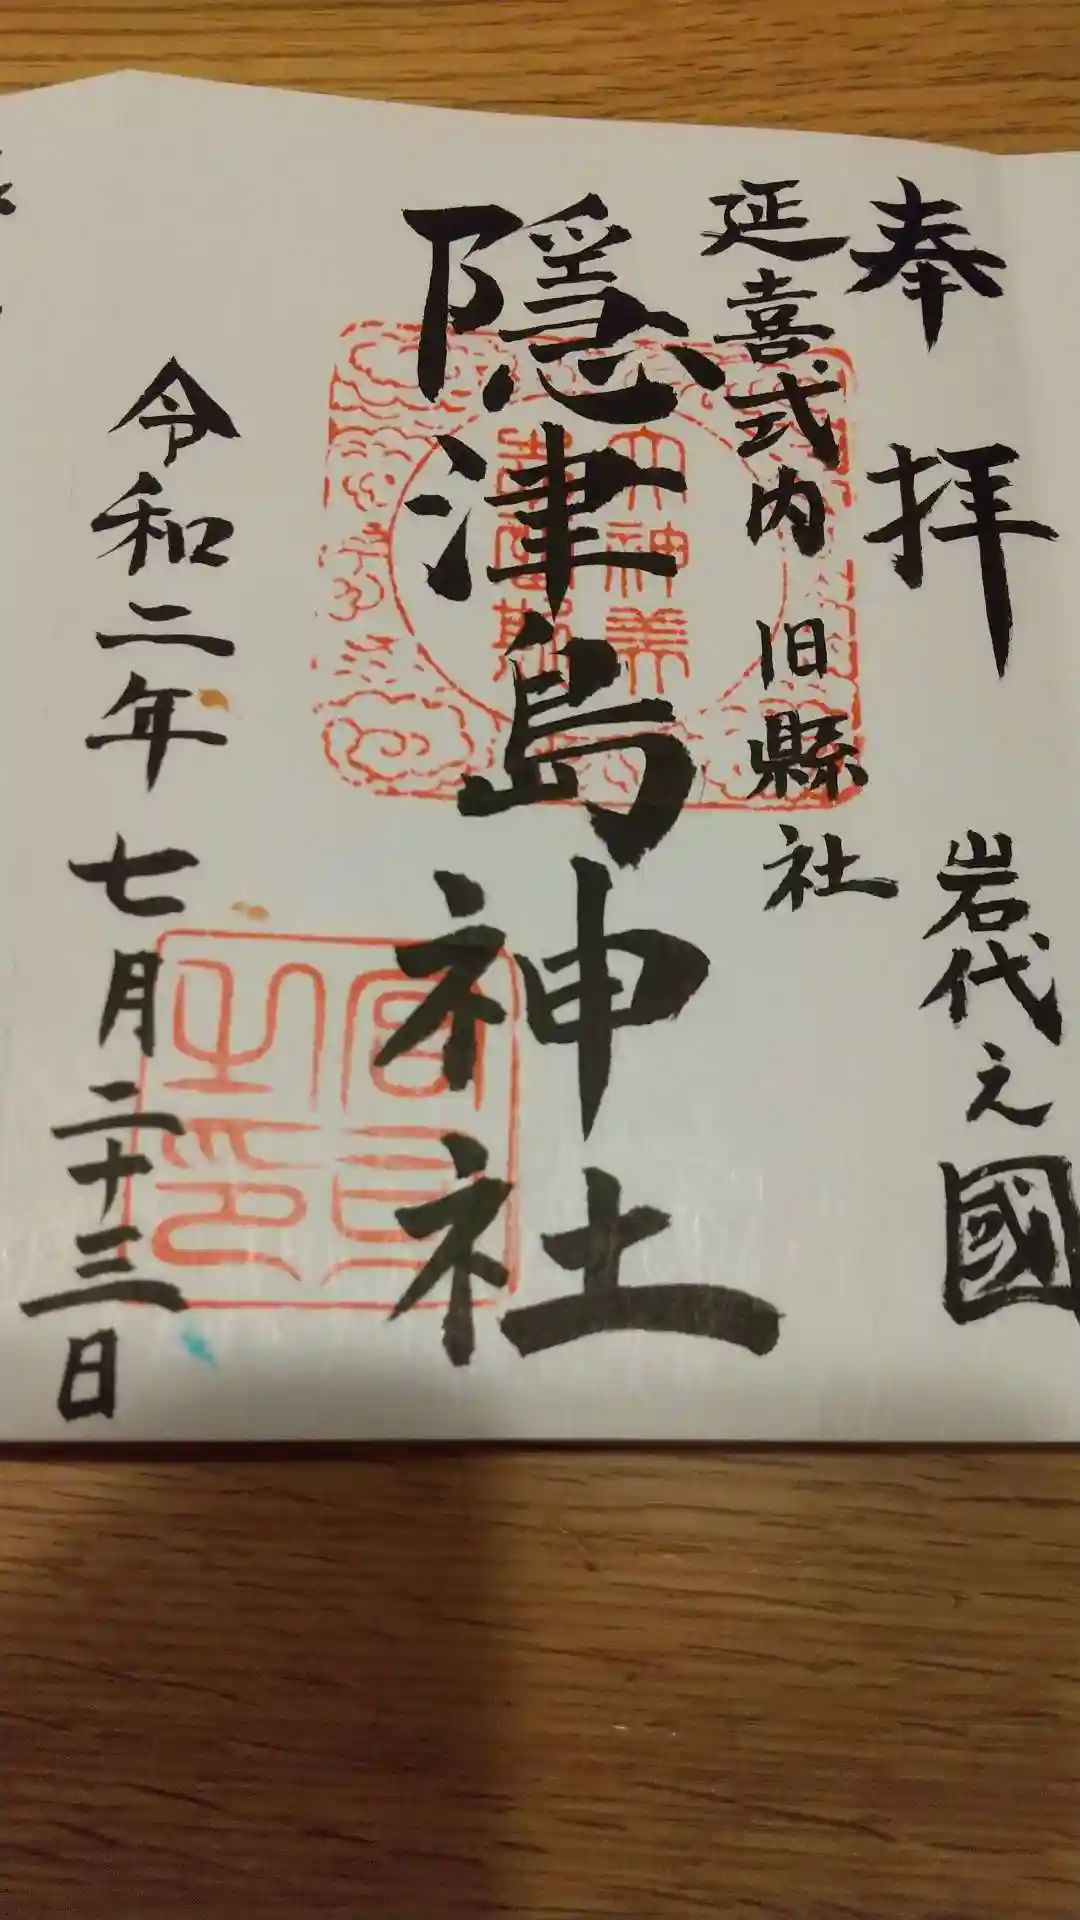 奉拝
岩代之國
延喜式内 旧縣社
隠津島神社
令和二年 七月二十三日
宮司之印